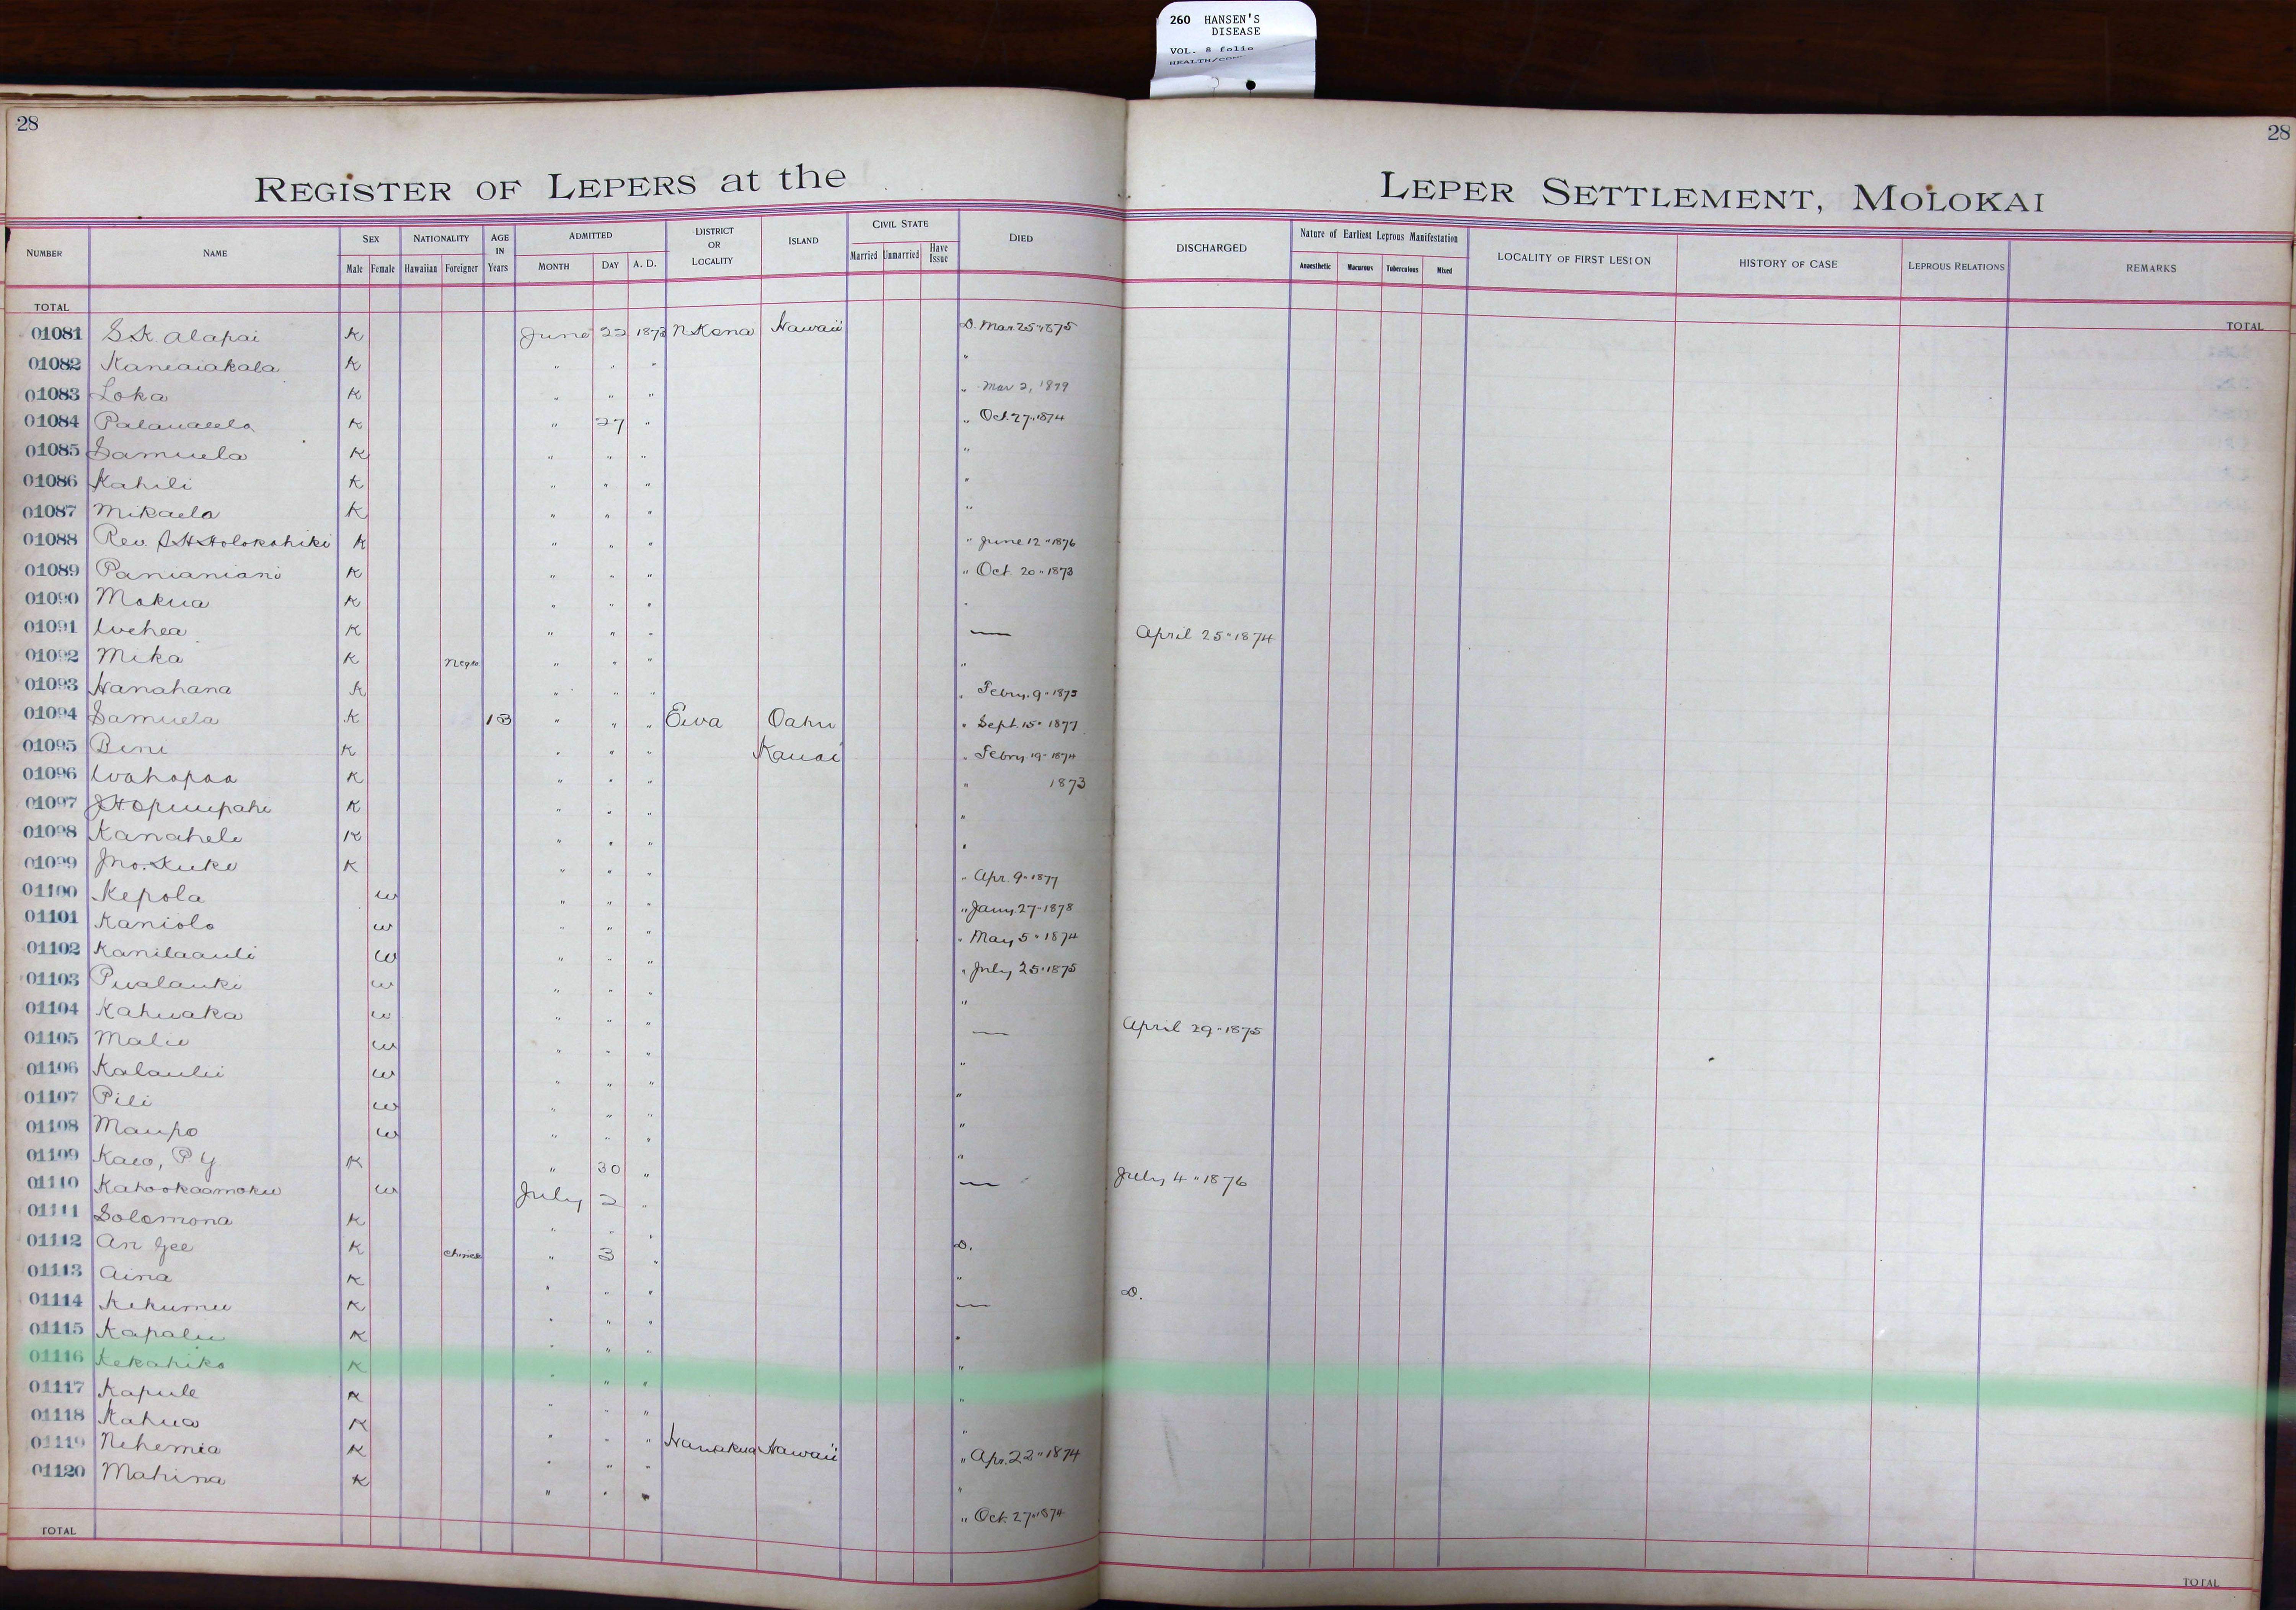 260 HANSEN'S
DISEASE
VOL. 8 folio
28
28
REGISTER OF LEPERS at the LEPER SETTLEMENT, MOLOKAI
NUMBER NAME SEX Male Female NATIONALITY Hawaiian Foreigner AGE IN Years ADMITTED MONTH DAY A. D. DISTRICT OR LOCALITY ISLAND CIVIL STATE Married Unmarried Have Issue DIED DISCHARGED Nature of Earliest Leprous Manifestation Anaesthetic Macurous Tuberculous Mixed LOCALITY OF FIRST LESION HISTORY OF CASE LEPROUS RELATIONS REMARKS
TOTAL TOTAL
01081 S.K. Alapai K June 22 1873 N Kona Hawaii D. Mar. 25 " 1875
01082 Kaneaiakala K " " " "
01083 Loka K " " " " Mar 2, 1879
01084 K " 27 " " Oct. 27 " 1874
01085 Samuela K " " " "
01086 Kahili K " " " "
01087 Mikaela K " " " "
01088 Rev. S H Holokahiki K " " " " June 12 " 1876
01089 Panianiani K " " " " Oct. 20 " 1873
01090 Mokua K " " " "
01091 Wehea K " " " — April 25 " 1874
01092 Mika K Negro " " " "
01093 Hanahana K " " " " Febry. 9 " 1875
01094 Samuela K 13 " " " Ewa Oahu " Sept. 15 " 1877
01095 Beni K " " " Kauai " Febry 19 " 1874
01096 Wahapaa K " " " " 1873
01097 J H Opuupahi K " " " "
01098 Kanahele K " " " "
01099 Jno. Kuke K " " " " Apr. 9 " 1877
01100 Kepola w " " " " Jany. 27 " 1878
01101 Kaniolo w " " " " May 5 " 1874
01102 Kanilaauli w " " " " July 25 " 1875
01103 Pualauki w " " " "
01104 Kahuaka w " " " — April 29 " 1875
01105 Malie w " " " "
01106 Kalaulii w " " " "
01107 Pili w " " " "
01108 Maupo w " " " "
01109 Kaeo, P Y K " 30 " — July 4 " 1876
01110 Kahookaamoku w July 2 "
01111 Solomona K " " " D.
01112 An Gee K Chinese " 3 " "
01113 Aina K " " " — D.
01114 Kekumu K " " " "
01115 Kapalu K " " " "
01116 Kekahiko K " " " "
01117 Kapule K " " " "
01118 Kahua K " " " Hamakua Hawaii " Apr. 22 " 1874
01119 Nehemia K " " " "
01120 Mahina K " " " " Oct. 27 " 1874
TOTAL TOTAL